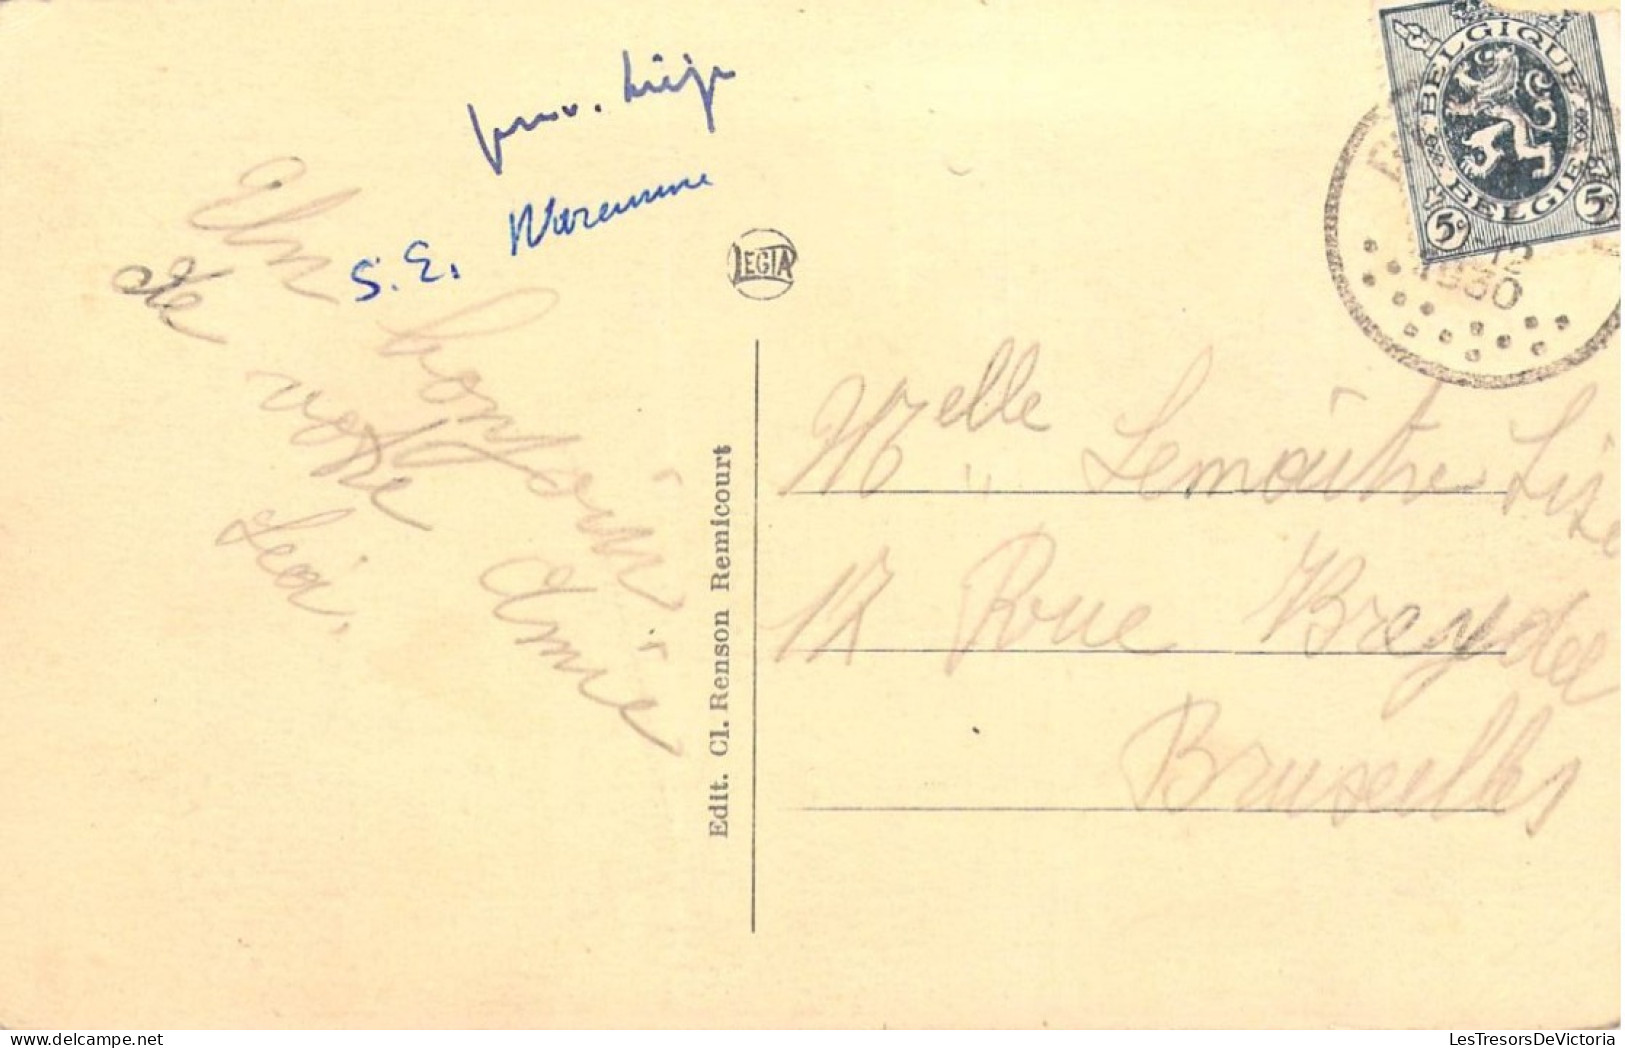 prov. Liége
S.E. Waremme
Un bonjour
de votre Amie
Léa.
LEGIA
Edit. Cl. Renson Remicourt
BELGIQUE
BELGIE
5c 5c
12
1930
Melle Lemaître Lise
17 Rue Breydel
Bruxelles
LesTresorsDeVictoria